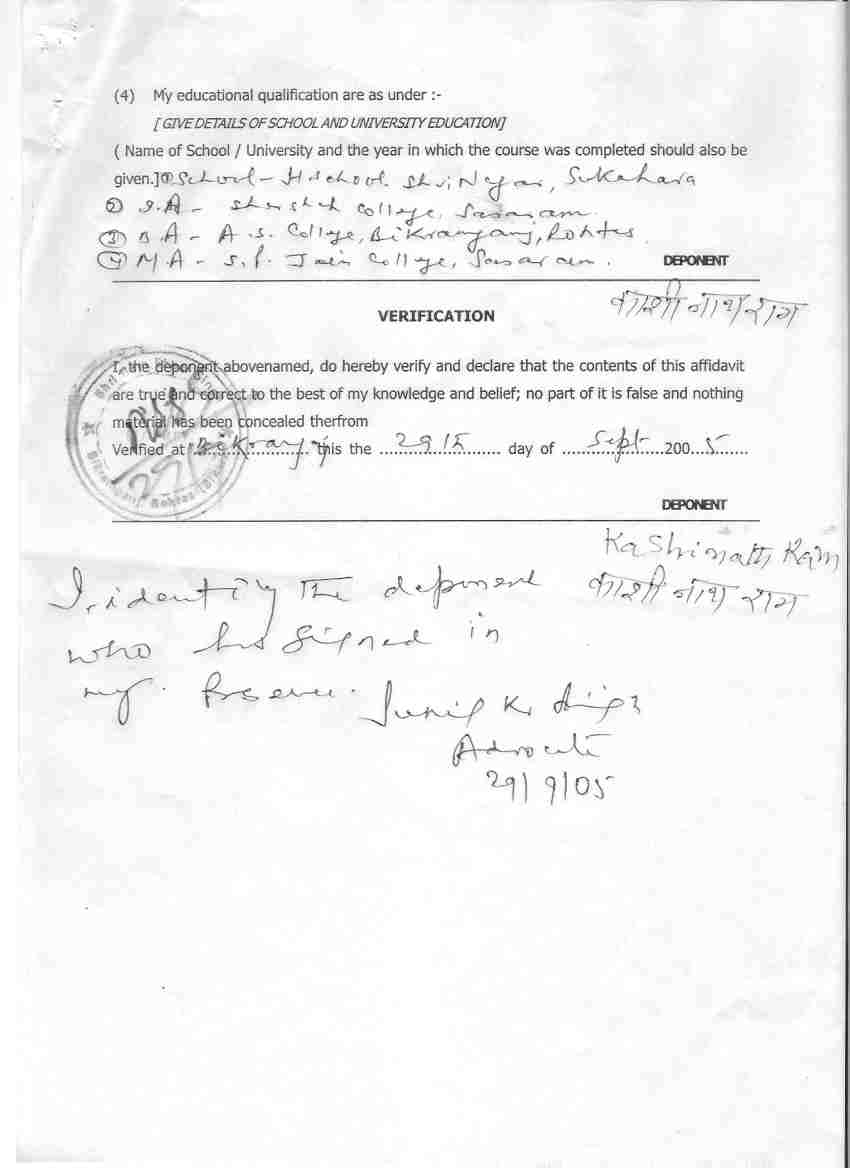 (4) My educational qualification are as under :-
[ GIVE DETAILS OF SCHOOL AND UNIVERSITY EDUCATION]
( Name of School / University and the year in which the course was completed should also be
given.]① School - H. school. Shri Nagar, Sukahara
② I.A - Shershah College, Sasaram.
③ B A - A .S. College, Bikramganj, Rohtas.
④ M A - S.P. Jain College, Sasaram.
DEPONENT
काशी नाथ राम
VERIFICATION
I, the deponent abovenamed, do hereby verify and declare that the contents of this affidavit
are true and correct to the best of my knowledge and belief; no part of it is false and nothing
material has been concealed therfrom
Verified at Bikramganj this the 29th day of Sept 2005
DEPONENT
Kashinath Ram
काशी नाथ राम
I, identify the deponent
who has signed in
my Presence.
Sunil Kr Singh
Advocate
29/9/05